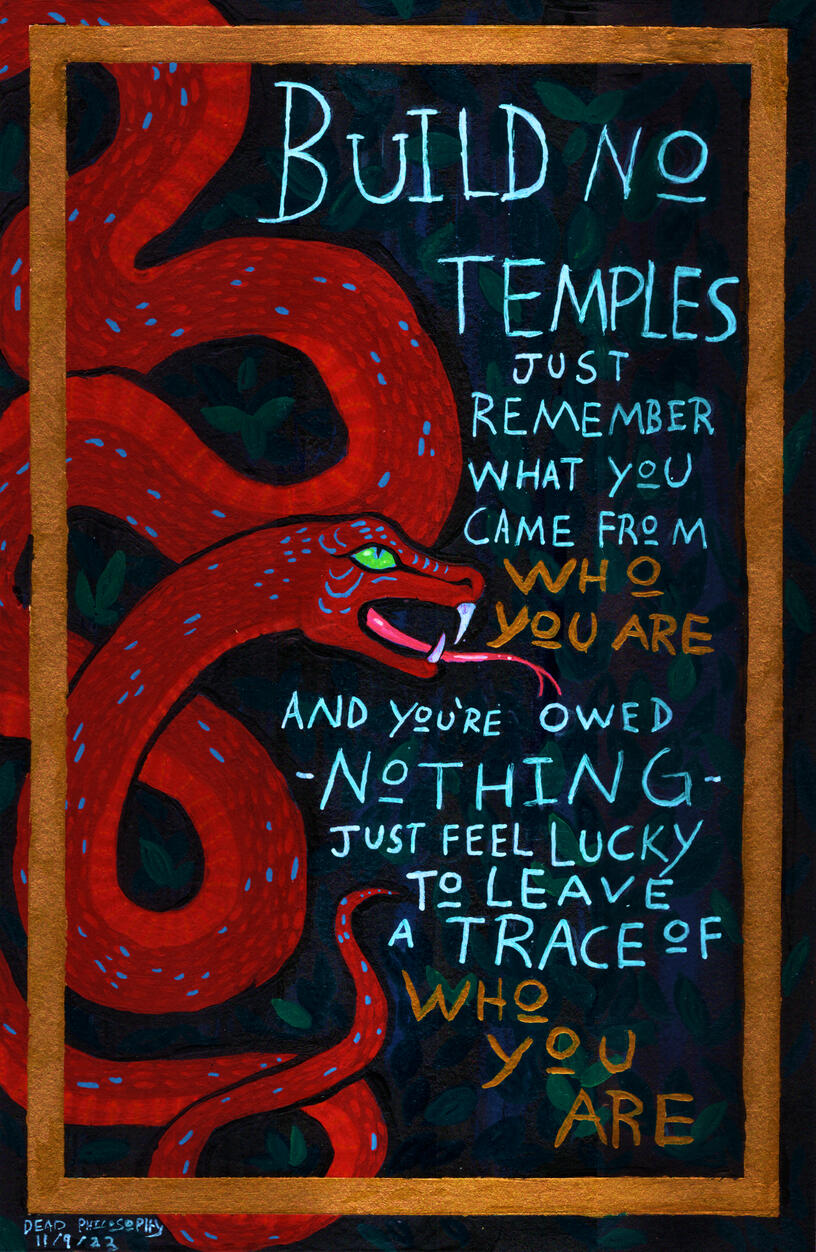 BUILD NO
TEMPLES
JUST
REMEMBER
WHAT YOU
CAME FROM
WHO
YOU ARE
AND YOU'RE OWED
-NOTHING-
JUST FEEL LUCKY
TO LEAVE
A TRACE OF
WHO
YOU
ARE
DEAD PHILOSOPHY
11/9/22